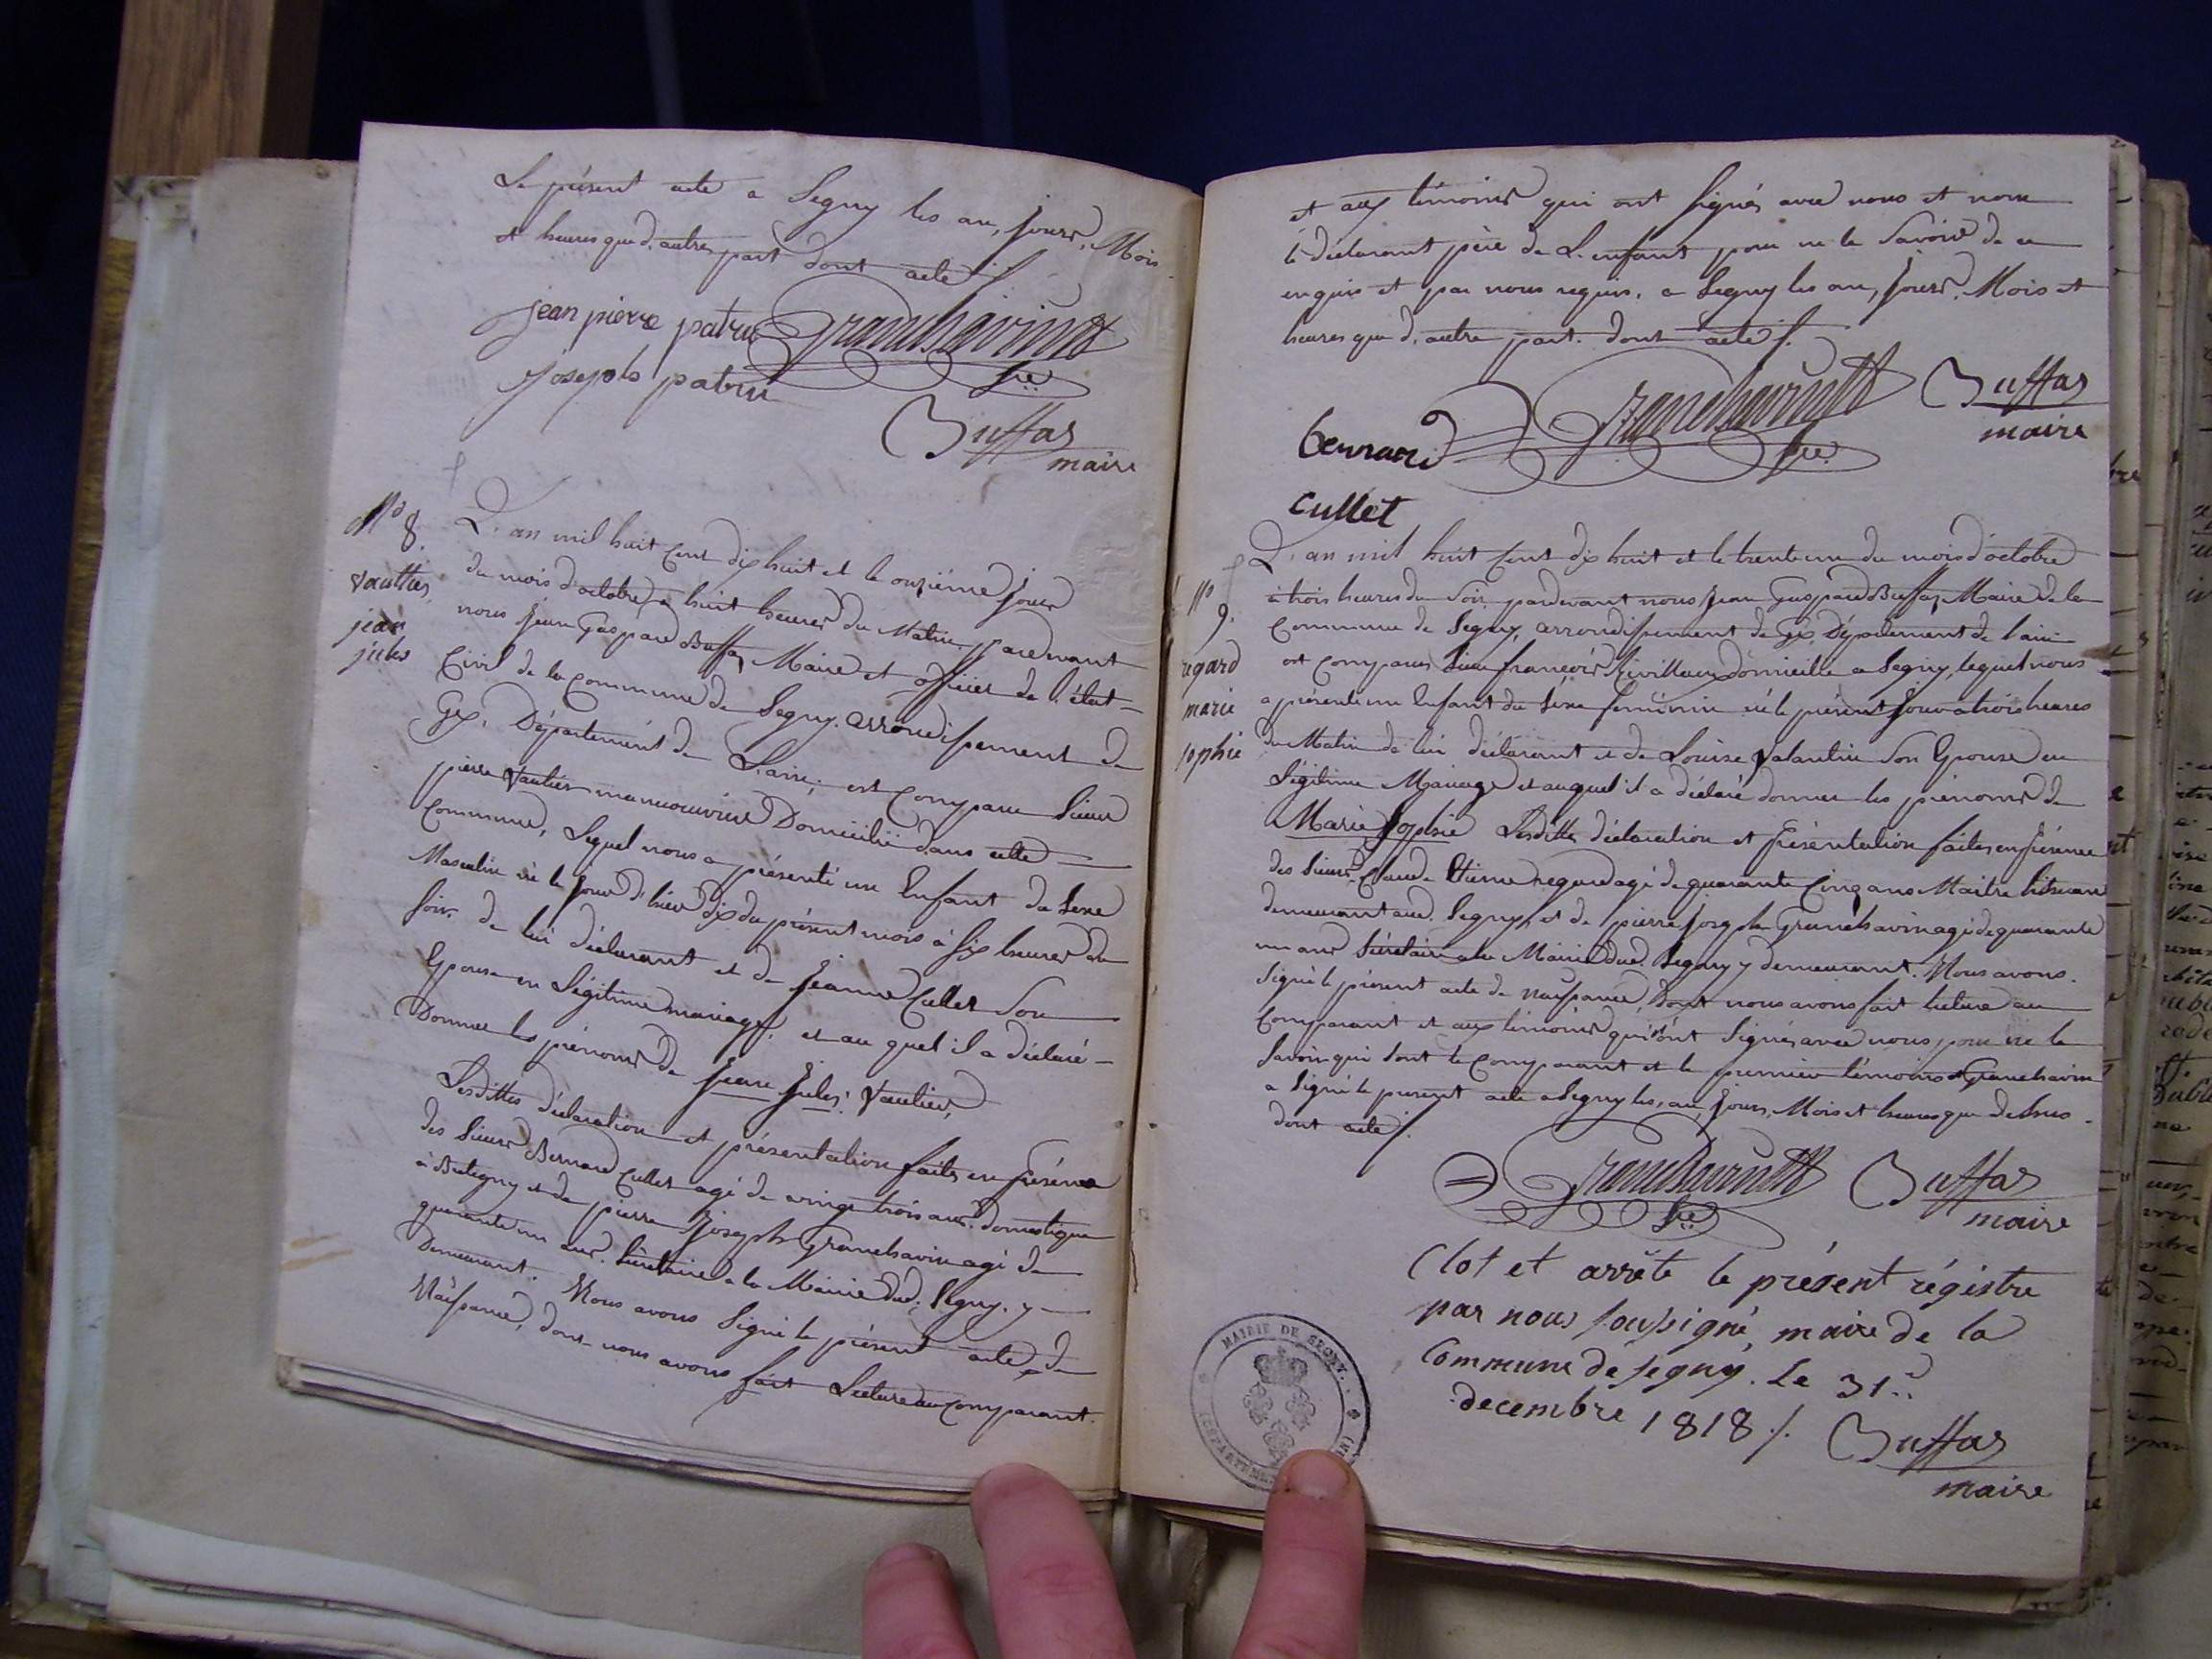 Le présent acte a Segny les an, jours, Mois
et heures que d'autre part dont acte ./.
jean pierre patru Granchavin
Sre
joseph patru
Buffas
maire
No 8.
Vautier
jean
jules
L'an mil huit Cent dix huit et le onzième jour
du mois d'octobre a huit heures du Matin, pardevant
nous Jean Gaspard Buffas, Maire et officier de l'état
Civil de la Commune de Segny. arrondissement de
Gex, Département de L'ain; est Comparu Sieur
pierre Vautier manouvrier Domicilié dans cette
Commune, Lequel nous a présenté un Enfant du Sexe
Masculin né le jour d'hier dix du présent mois à six heures du
soir. de lui déclarant et de Jeanne Cullet Son
Epouse en Légitime mariage, et au quel il a déclaré
Donner les prénoms de Jean Jules, Vautier,
Lesdittes déclaration et présentation faites en présence
des Sieurs Bernard Cullet agé de vingt trois ans. domestique
à Bretigny et de pierre Joseph Granchavin agé de
quarante un ans. Secrétaire a la Mairie dud. Segny. y
Demeurant. Nous avons Signé le présent acte de
Naissance, dont nous avons fait Lecture au Comparant
et aux témoins qui ont signés avec nous et non
le déclarant père de L'enfant pour ne le Savoir de ce
enquis et par nous requis. a Segny les an, jours, Mois et
heures que d'autre part. dont acte ./.
Bernard Granchavin Buffas
Sre maire
Cullet
No
9.
regard
marie
sophie
L'an mil huit Cent dix huit et le trente un du mois d'octobre
à trois heures du Soir, pardevant nous Jean Gaspard Buffas, Maire de la
Commune de Segny, arrondissement de Gex, Département de l'ain
est Comparu Sieur françois domicillié a Segny, lequel nous
a présenté un Enfant du Sexe féminin né le présent jour à trois heures
du Matin de lui déclarant et de Louise Valantin Son Epouse en
Légitime Mariage et auquel il a déclaré donner les prénoms de
Marie Sophie Lesdittes déclaration et présentation faites en présence
des Sieurs Claude Etienne regard agé de quarante Cinq ans Maitre
demeurant aud. Segny, et de pierre Joseph Granchavin agé de quarante
un ans Secrétaire a la Mairie dud. Segny y demeurant. Nous avons
Signé le présent acte de naissance, dont nous avons fait lecture au
Comparant et aux témoins qui ont Signés avec nous, pour ne le
Savoir qui sont le Comparant et le premier témoins et Granchavin
a Signé le present acte a Segny les, an, jours, Mois et heures que dessus
dont acte ./.
Granchavin Buffas
Sre maire
Clot et arrête le présent régistre
par nous soussigné, maire de la
Commune de Segny. Le 31
decembre 1818 ./. Buffas
maire
MAIRIE DE SEGNY.